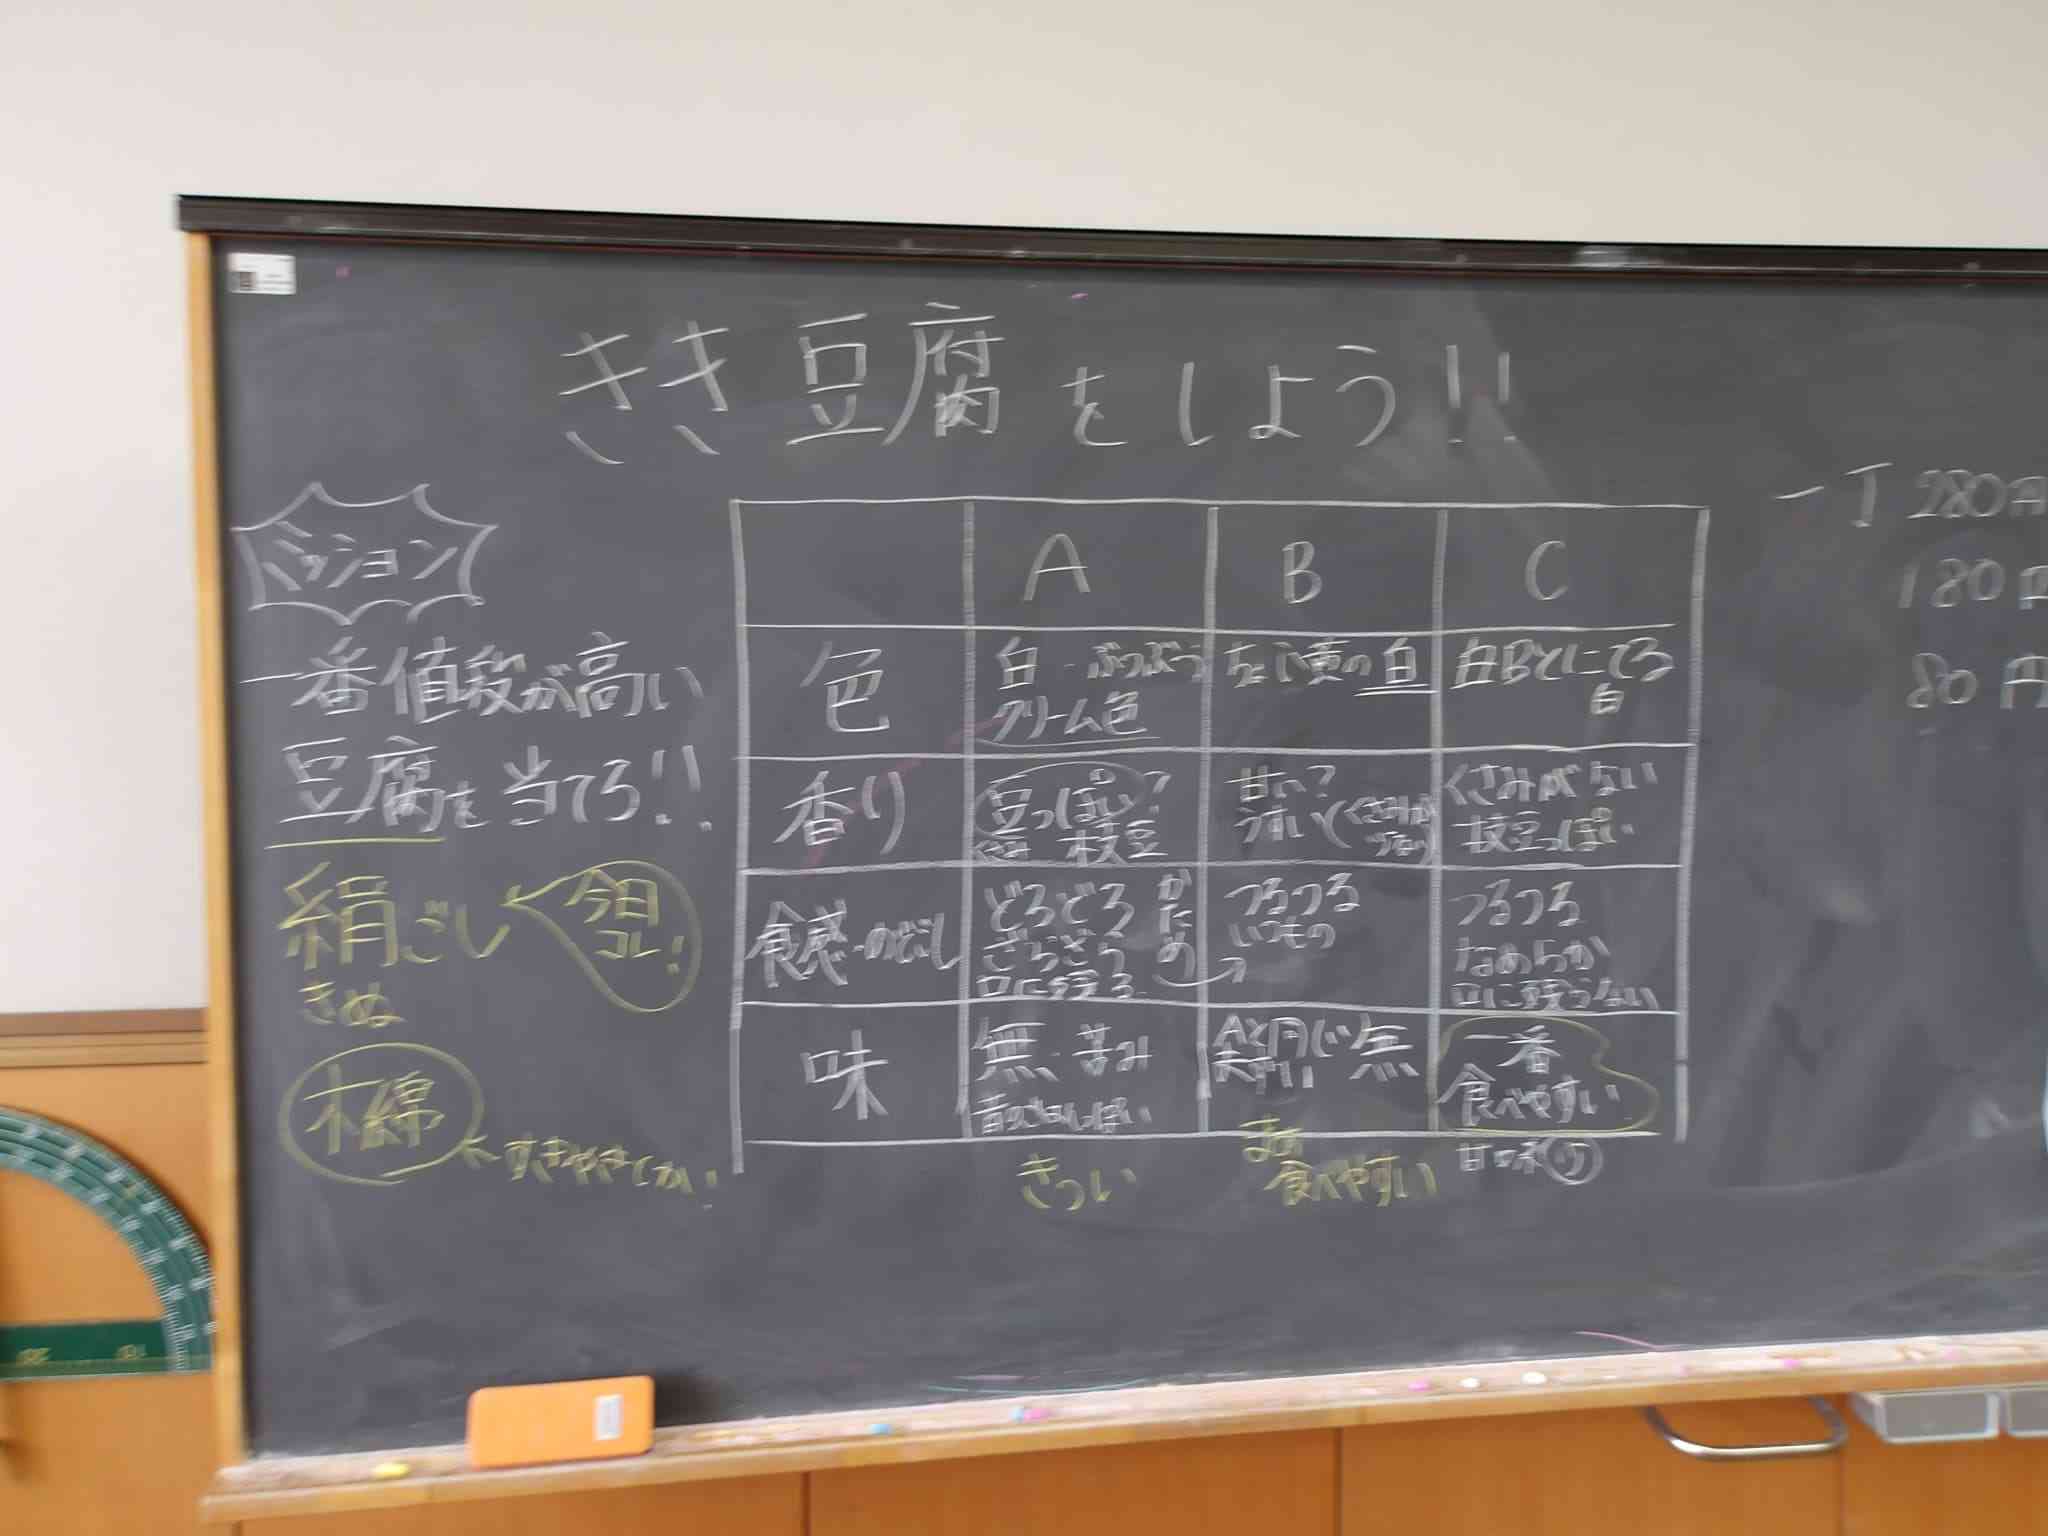 きき豆腐をしよう!!
ミッション
一番値段が高い
豆腐を当てろ!!
絹ごし
きぬ
今日
コレ!
木綿
←すきやきとか!
A B C
色
白 ぶつぶつ
クリーム色
黄の白
白Bとにてる
白
香り
豆っぽい?
枝豆
甘い?
うすい
くさみがない
枝豆っぽい
食感・のどごし
どろどろ
ざらざら
口に残る
かため
つるつる
いつもの
つるつる
なめらか
口に残らない
味
無・苦み
Aと同じ 無
一番
食べやすい
甘味
きつい
まあ
食べやすい
一丁 280円
180円
80円